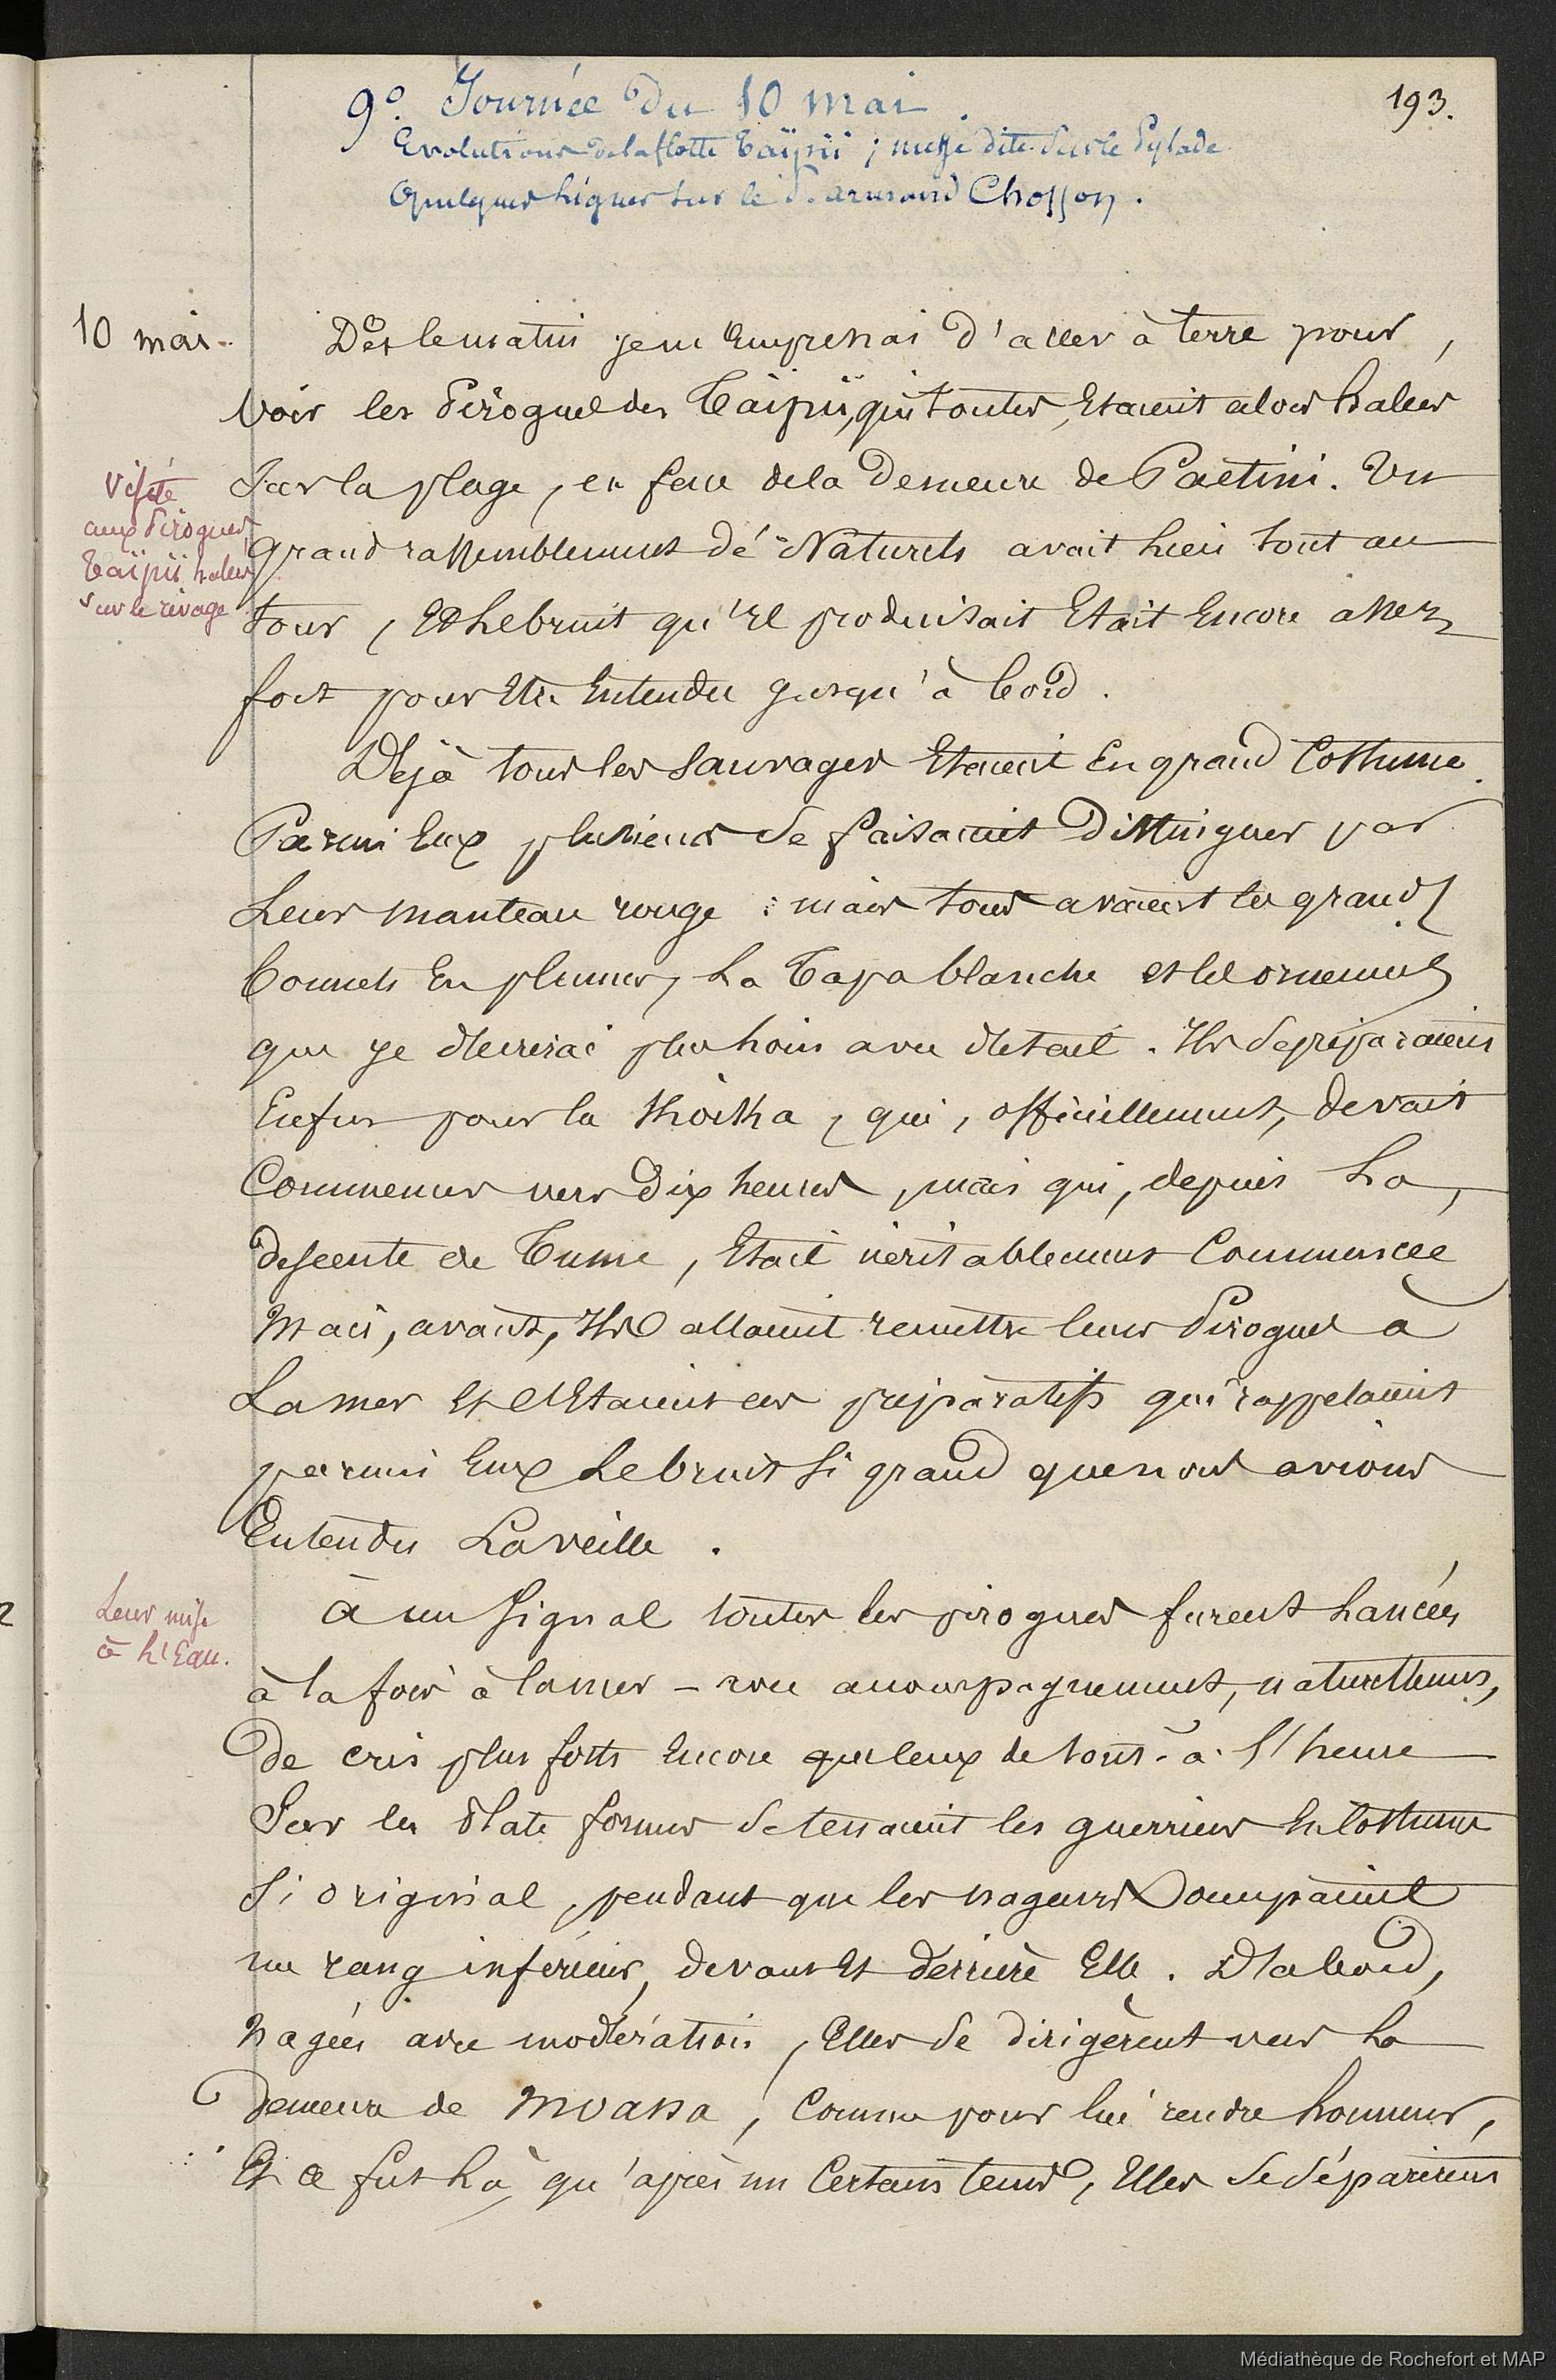 193.
9º. Journée du 10 mai.
Evolutions de la flotte Taïpii ; messe dite sur le Pylade.
Quelques lignes sur le P. Armand Chosson.
10 mai.
Dès le matin je m'empressai d'aller à terre pour,
voir les Pirogues des Taïpii, qui toutes, Etaient alors halées
Visite
aux Pirogues
Taïpii halées
sur le rivage
Sur la plage, en face de la Demeure de Paetini. Un
grand rassemblement de Naturels avait lieu tout au
tour, Et le bruit qu'il produisait Etait Encore assez
fort pour Etre Entendu jusqu'à bord.
Déjà tous les Sauvages Etaient En grand Costume.
Parmi Eux plusieurs se faisaient Distinguer par
Leur manteau rouge : mais tous avaient les grands
bonnets En plumes, La Tapa blanche et les ornements
que je décrirai plus loin avec détail. Ils se préparaient
Enfin pour la Khoïkha, qui, officiellement, devait
Commencer vers Dix heures, mais qui, depuis La,
descente de Tume, Etait véritablement Commencée
Mais, avant, Ils allaient remettre leurs Pirogues à
La mer Et c'Etaient ces préparatifs qui rappelaient
parmi Eux Le bruit Si grand que nous avions
Entendu La veille.
Leur mise
à L'Eau.
à un Signal toutes les pirogues furent Lancées
à la fois à la mer - avec accompagnement, naturellement,
De cris plus forts Encore que ceux de tout-à-l'heure
Sur les Plate formes se tenaient les guerriers En Costume
Si original, pendant que les nageurs occupaient
un rang inférieur, devant Et derrière Elle. D'abord,
Nagées avec modération, Elles se dirigèrent vers La
Demeure de Moana, Comme pour lui rendre honneur,
Et ce fut Là, qu'après un Certain tems, Elles se séparèrent
Médiathèque de Rochefort et MAP